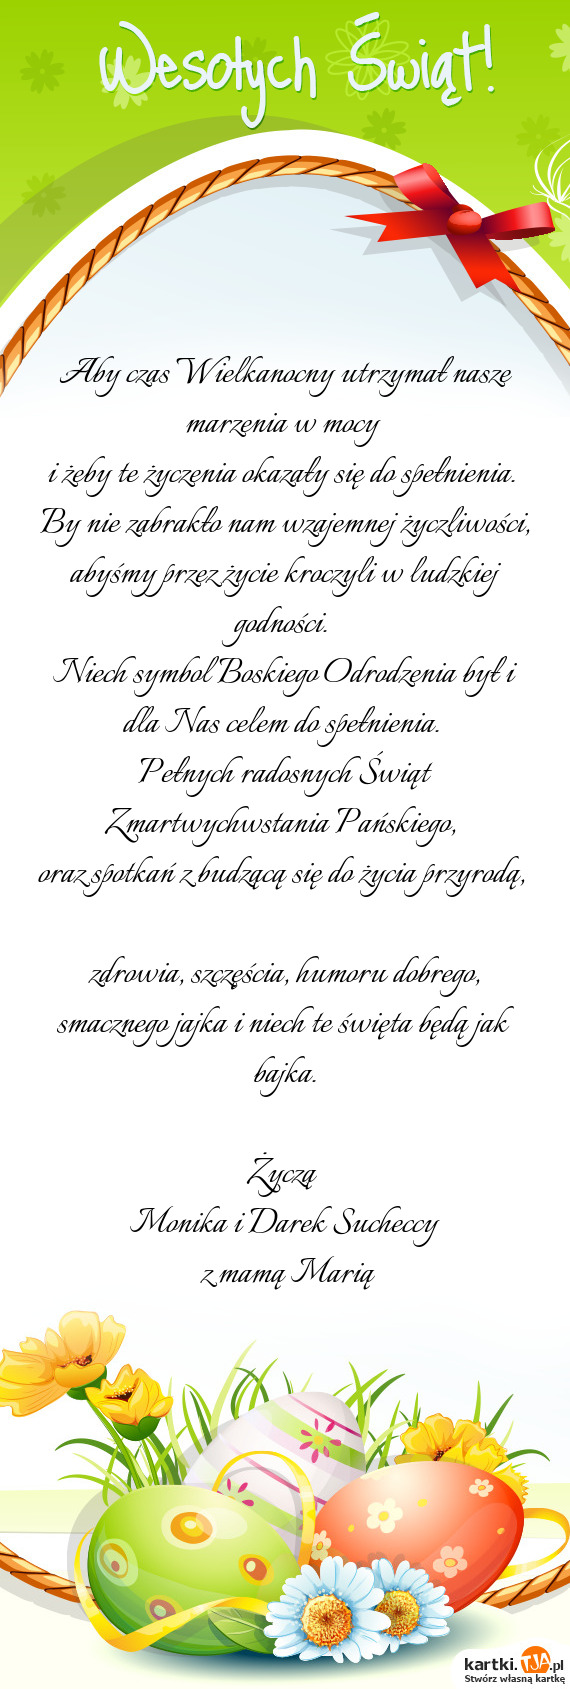 Wesołych Świąt!
Aby czas Wielkanocny utrzymał naszę
marzenia w mocy
i żeby te życzenia okazały się do spełnienia.
By nie zabrakło nam wzajemnej życzliwości,
abyśmy przez życie kroczyli w ludzkiej
godności.
Niech symbol Boskiego Odrodzenia był i
dla Nas celem do spełnienia.
Pełnych radosnych Świąt
Zmartwychwstania Pańskiego,
oraz spotkań z budzącą się do życia przyrodą,
zdrowia, szczęścia, humoru dobrego,
smacznego jajka i niech te święta będą jak
bajka.
Życzą
Monika i Darek Sucheccy
z mamą Marią
kartki.TJA.pl
Stwórz własną kartkę